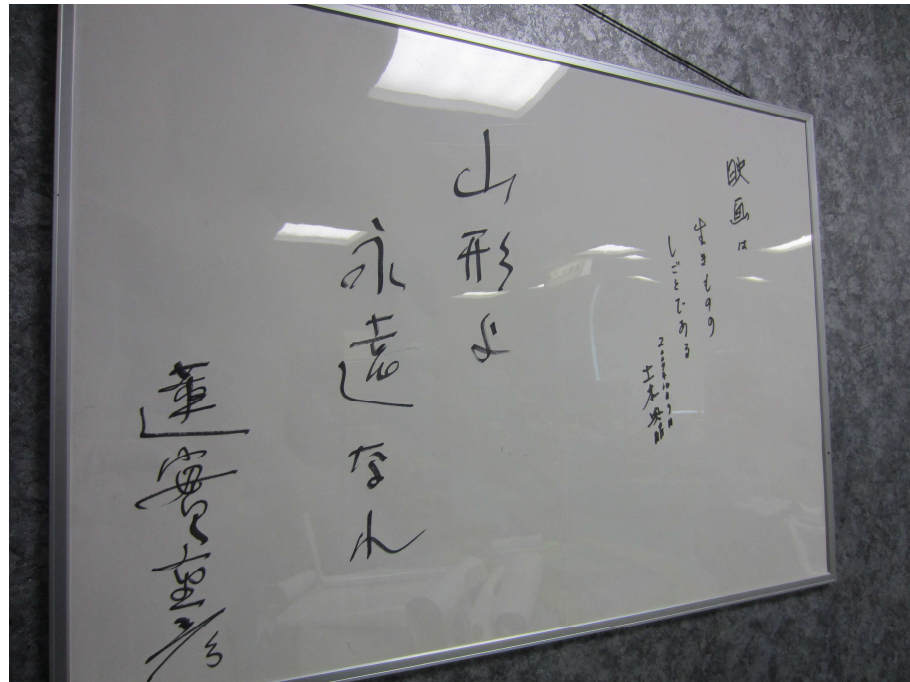 映画は
生きものの
しごとである
土本典昭
山形よ
永遠なれ
蓮實重彦